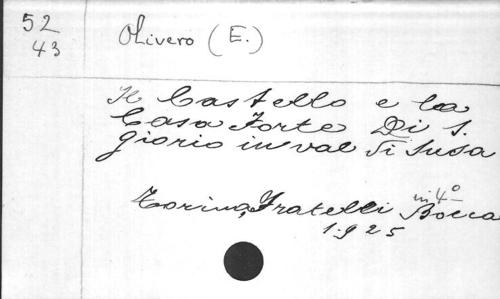 52
43
Olivero (E.)
Il Castello e la
Casa Forte Di S.
Giorio in val di Susa
in 4°
Torino, Fratelli Bocca
1925